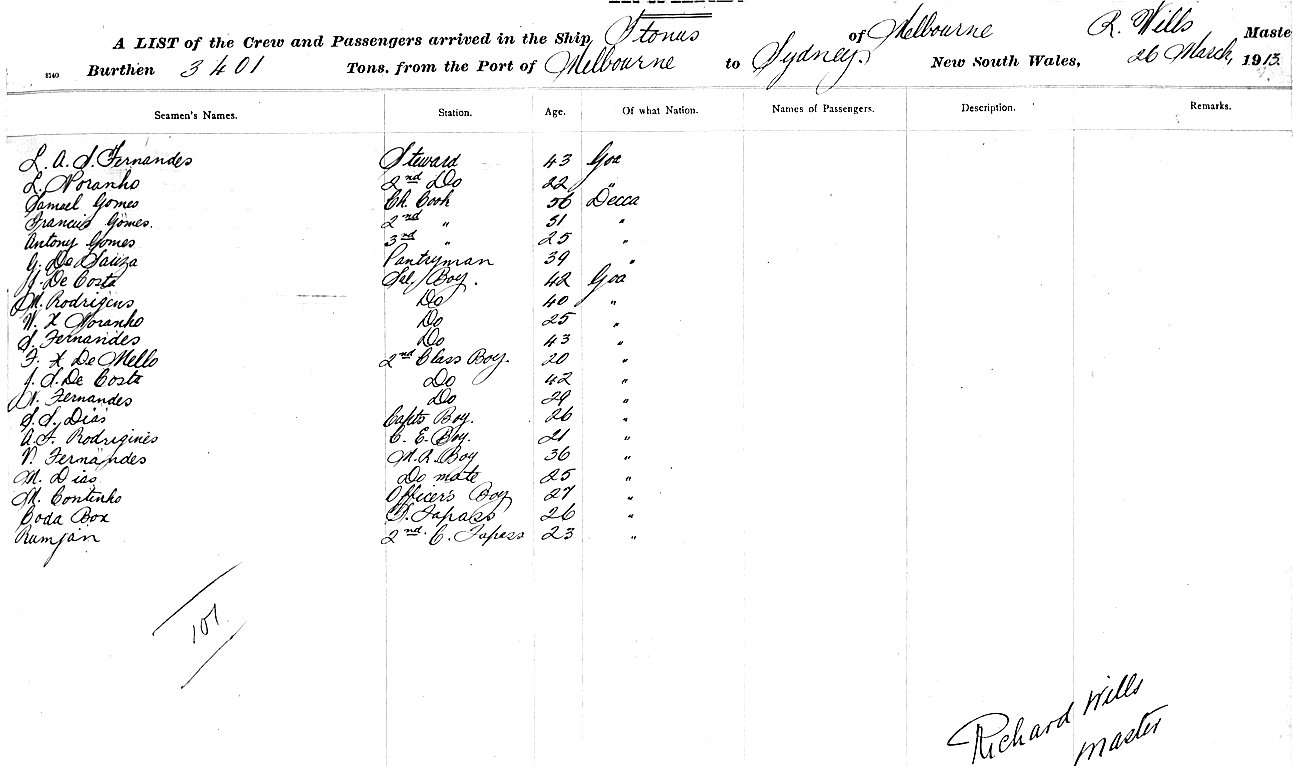 A LIST of the Crew and Passengers arrived in the Ship Itonus of Melbourne R. Wills Maste
8140 Burthen 3401 Tons. from the Port of Melbourne to Sydney. New South Wales, 26 March, 1913.
Seamen's Names. Station. Age. Of what Nation. Names of Passengers. Description. Remarks.
L. A. S. Fernandes Steward 43 Goa
L. Noranho 2nd Do 22 "
Samuel Gomes Ch. Cook 56 Decca
Francis Gomes. 2nd " 51 "
Antony Gomes 3rd " 25 "
G. De Sauza Pantryman 39 "
J. De Costa Sal/Boy. 42 Goa
M. Rodrigius Do 40 "
W. X Noranho Do 25 "
S. Fernandes Do 43 "
F. X De Mello 2nd Class Boy. 20 "
J. S. De Costa Do 42 "
N. Fernandes Do 29 "
S. S. Dias Capts Boy. 26 "
A. F. Rodriginès C. E. Boy. 21 "
V. Fernandes M.R. Boy 36 "
M. Dias Do mate 25 "
M. Contenho Officers Boy 27 "
Boda Box S. Tapass 26 "
Rumjan 2nd. C. Tapass 23 "
101
Richard Wills
Master